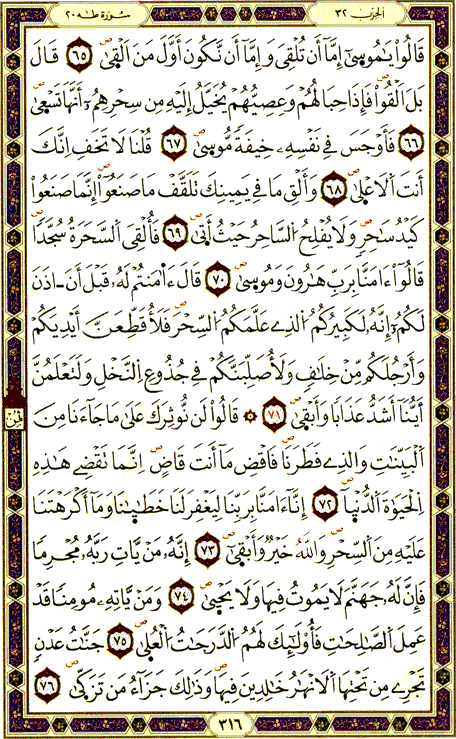 سورة طه ٢٠ الحزب ٣٢
قَالُواْ يَٰمُوسَىٰٓ إِمَّآ أَن تُلْقِىَ وَإِمَّآ أَن نَّكُونَ أَوَّلَ مَنَ اَلْقَىٰ ٦٥ قَالَ
بَلَ اَلْقُواْ فَإِذَا حِبَالُهُمْ وَعِصِيُّهُمْ يُخَيَّلُ إِلَيْهِ مِن سِحْرِهِمُۥٓ أَنَّهَا تَسْعَىٰ
٦٦ فَأَوْجَسَ فِى نَفْسِهِۦ خِيفَةً مُّوسَىٰ ٦٧ قُلْنَا لَا تَخَفِ اِنَّكَ
أَنتَ اَلَاعْلَىٰ ٦٨ وَأَلْقِ مَا فِى يَمِينِكَ تَلَقَّفْ مَا صَنَعُوٓاْ إِنَّمَا صَنَعُواْ
كَيْدُ سَٰحِرٍ وَلَا يُفْلِحُ اُلسَّاحِرُ حَيْثُ أَتَىٰ ٦٩ فَأُلْقِىَ اَلسَّحَرَةُ سُجَّدًا
قَالُوٓاْ ءَامَنَّا بِرَبِّ هَٰرُونَ وَمُوسَىٰ ٧٠ قَالَ ءَاٰمَنتُمْ لَهُۥ قَبْلَ أَنَ ـ اذَنَ
لَكُمُۥٓ إِنَّهُۥ لَكَبِيرُكُمُ اُلذِى عَلَّمَكُمُ اُلسِّحْرَ فَلَأُقَطِّعَنَّ أَيْدِيَكُمْ
وَأَرْجُلَكُم مِّنْ خِلَٰفٍ وَلَأُصَلِّبَنَّكُمْ فِى جُذُوعِ اِلنَّخْلِ وَلَتَعْلَمُنَّ
أَيُّنَآ أَشَدُّ عَذَابًا وَأَبْقَىٰ ٧١ ۞ قَالُواْ لَن نُّوثِرَكَ عَلَىٰ مَا جَآءَنَا مِنَ
اَلْبَيِّنَٰتِ وَالذِى فَطَرَنَا فَاقْضِ مَآ أَنتَ قَاضٍ اِنَّمَا تَقْضِى هَٰذِهِ
اِلْحَيَوٰةَ اَلدُّنْيَآ ٧٢ إِنَّآ ءَامَنَّا بِرَبِّنَا لِيَغْفِرَ لَنَا خَطَٰيَٰنَا وَمَآ أَكْرَهْتَنَا
عَلَيْهِ مِنَ اَلسِّحْرِ وَاللَّهُ خَيْرٌ وَأَبْقَىٰٓ ٧٣ إِنَّهُۥ مَنْ يَّاتِ رَبَّهُۥ مُجْرِمًا
فَإِنَّ لَهُۥ جَهَنَّمَ لَا يَمُوتُ فِيهَا وَلَا يَحْيَىٰ ٧٤ وَمَنْ يَّاتِهِۦ مُومِنًا قَدْ
عَمِلَ اَلصَّٰلِحَٰتِ فَأُوْلَٰٓئِكَ لَهُمُ اُلدَّرَجَٰتُ اُلْعُلَىٰ ٧٥ جَنَّٰتُ عَدْنٍ
تَجْرِى مِن تَحْتِهَا اَلَانْهَٰرُ خَٰلِدِينَ فِيهَا وَذَٰلِكَ جَزَآءُ مَن تَزَكَّىٰ ٧٦
٣١٦